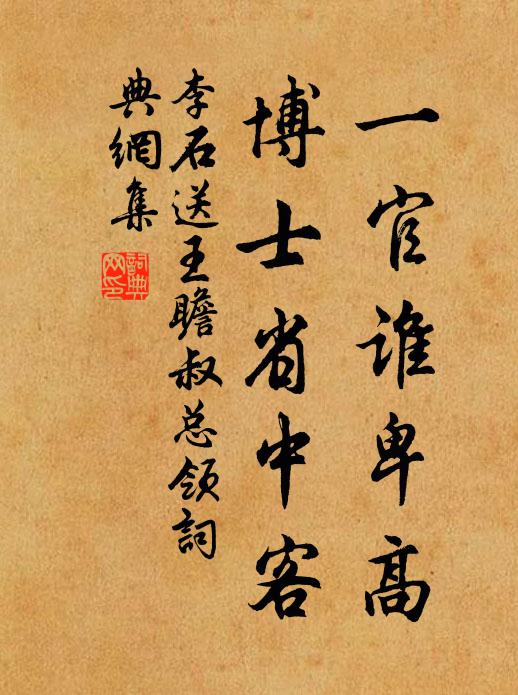 一官谁卑高
博士省中客
李石送王瞻叔总领词
典網集
詞典
网印